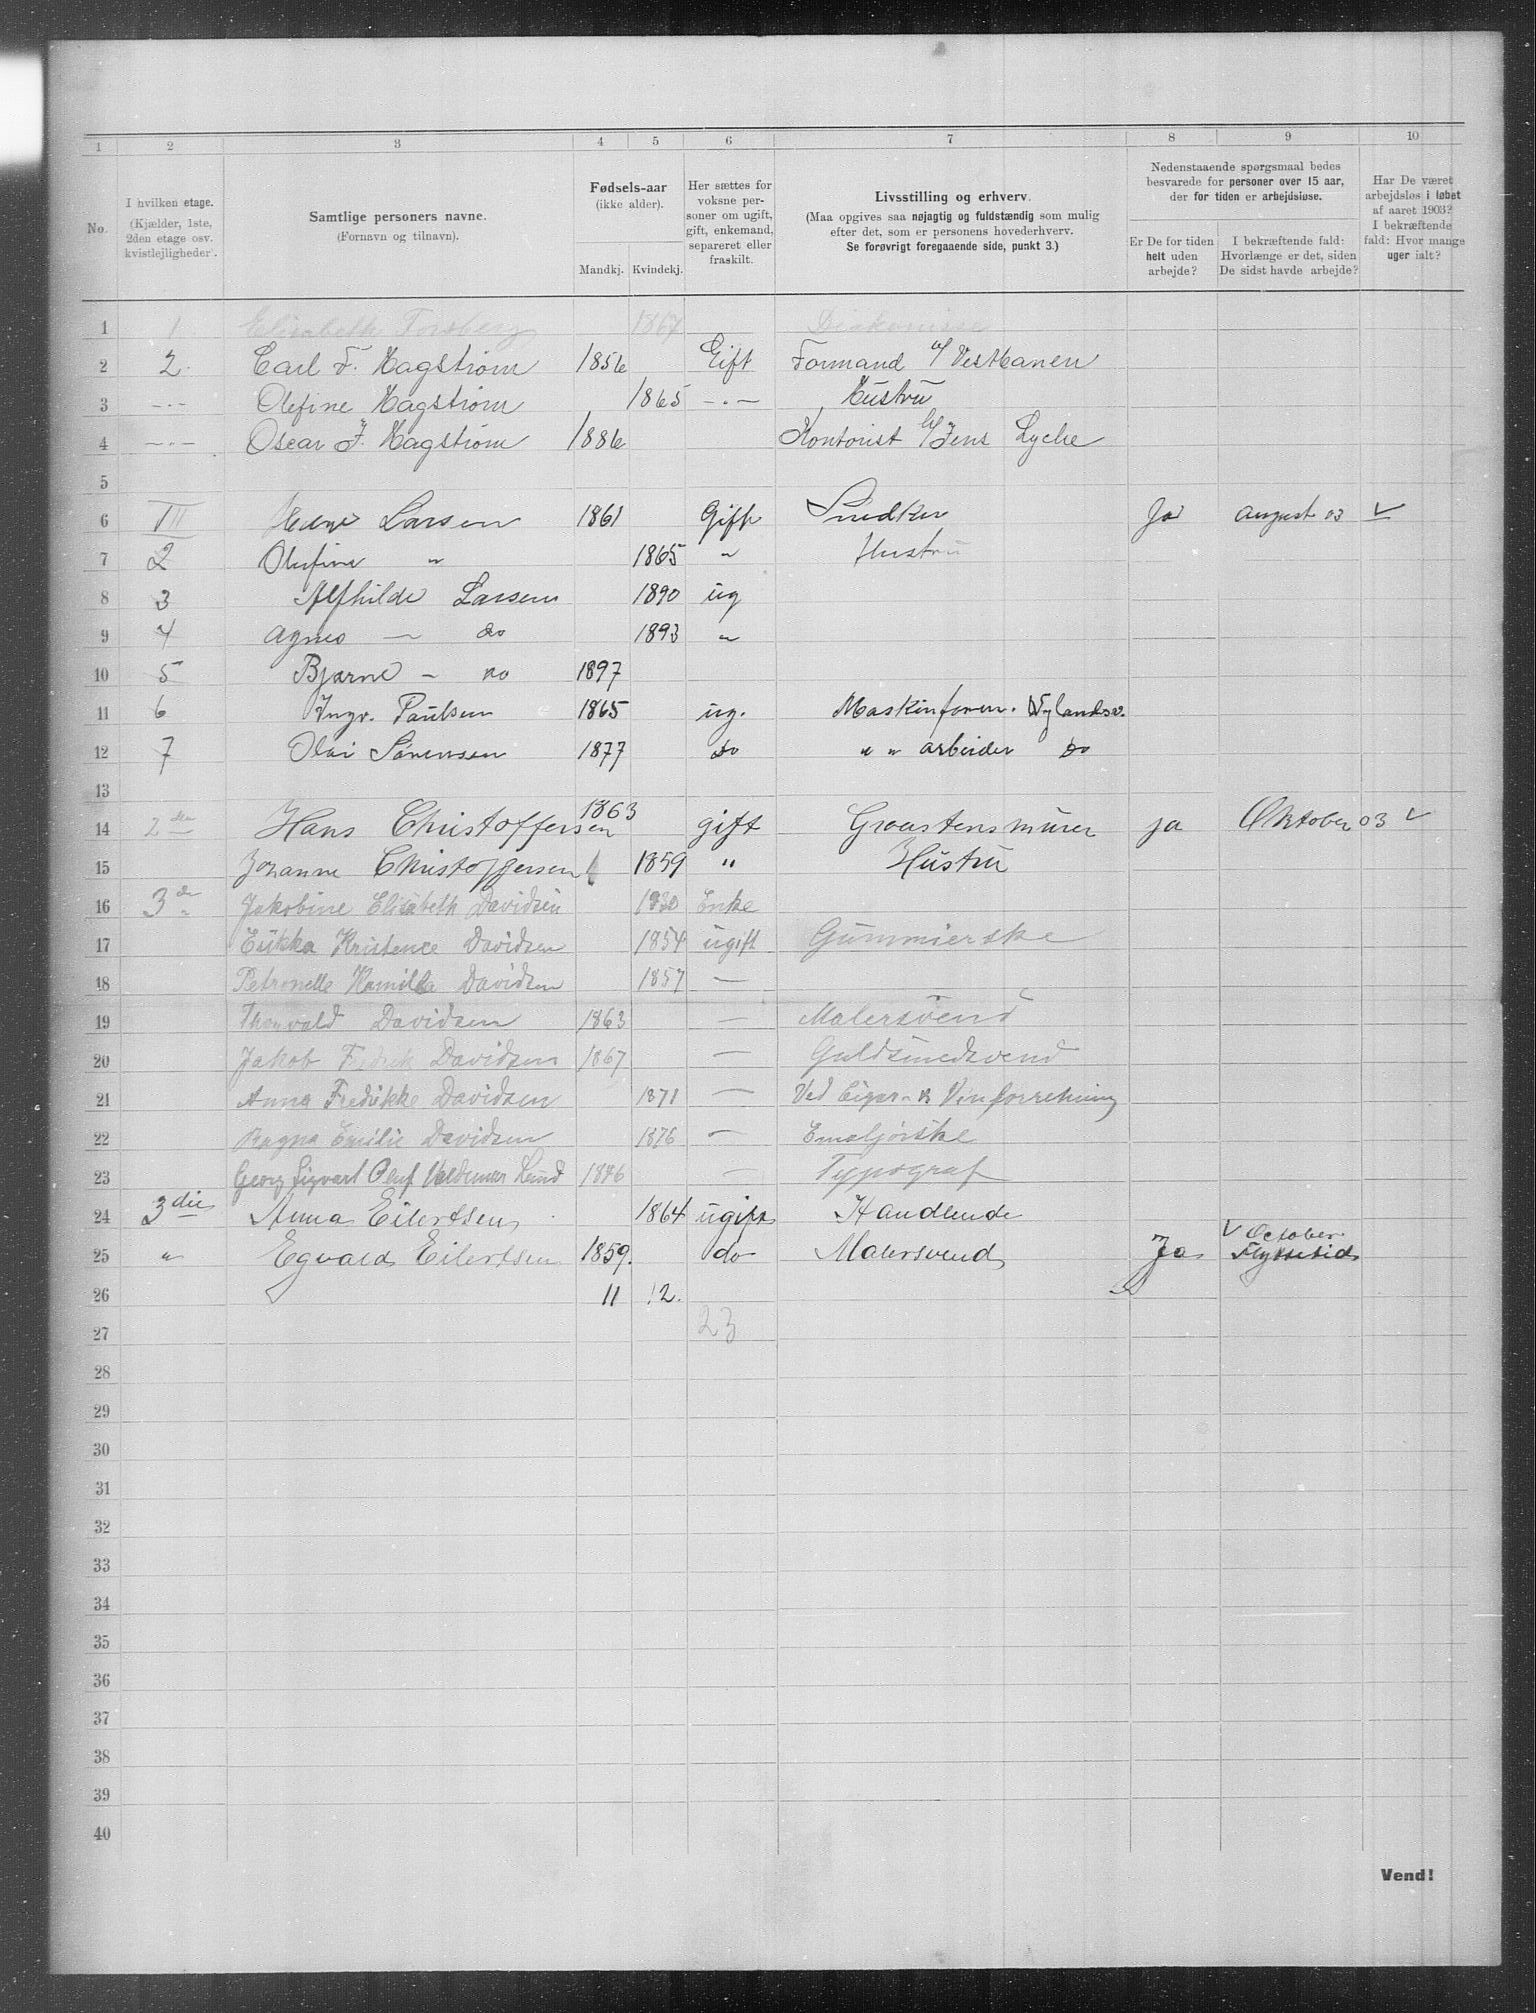 1 2 3 4 5 6 7 8 9 10
No. I hvilken etage. (Kjælder, 1ste, 2den etage osv. kvistlejligheder). Samtlige personers navne. (Fornavn og tilnavn). Fødsels-aar (ikke alder). Mandkj. Kvindekj. Her sættes for voksne personer om ugift, gift, enkemand, separeret eller fraskilt. Livsstilling og erhverv. (Maa opgives saa nøjagtig og fuldstændig som mulig efter det, som er personens hovederhverv. Se forøvrigt foregaaende side, punkt 3.) Nedenstaaende spørgsmaal bedes besvarede for personer over 15 aar, der for tiden er arbejdsløse. Er De for tiden helt uden arbejde? I bekræftende fald: Hvorlænge er det, siden De sidst havde arbejde? Har De været arbejdsløs i løbet af aaret 1903? I bekræftende fald: Hvor mange uger ialt?
1 1 Elisabeth Forsberg 1867 Diakonisse
2 2. Carl F. Hagstrøm 1856 Gift Formand v/ Vestbanen
3 —"— Olefine Hagstrøm 1865 —"— Hustru
4 —"— Oscar F. Hagstrøm 1886 Kontorist b/ Jens Lyche
5
6 III Larsen 1861 Gift Snedker Ja August 03 ✓
7 2 Olufine " 1865 " Hustru
8 3 Alfhilde Larsen 1890 ug
9 4 Agnes — do 1893 "
10 5 Bjarne — do 1897
11 6 Ingv. Paulsen 1865 ug. Maskinform. Nylandsv.
12 7 Olai Sørensen 1877 do " " arbeider do
13
14 2den Hans Christoffersen 1863 gift Graastensmurer ja Oktober 03 ✓
15 Johanne Christoffersen 1859 " Hustru
16 3de Jakobine Elisabeth Davidsen 1830 Enke
17 Kristence Davidsen 1854 ugift Gummierske
18 Petronelle Kamilla Davidsen 1857 —
19 Thorvald Davidsen 1863 — Malersvend
20 Jakob Fredrik Davidsen 1867 — Guldsmedsvend
21 Anna Fredrikke Davidsen 1871 — Ved Cigar- & Vinforretning
22 Ragna Emilie Davidsen 1876 — Emaljørske
23 Georg Sigvart Oluf Valdemar Lund 1846 — Typograf
24 3die Anna Eilertsen 1864 ugift Handlende
25 " Egvald Eilertsen 1859. do Malersvend Ja ✓ October Flyttetid
26 11 12.
27 23
28
29
30
31
32
33
34
35
36
37
38
39
40
Vend!